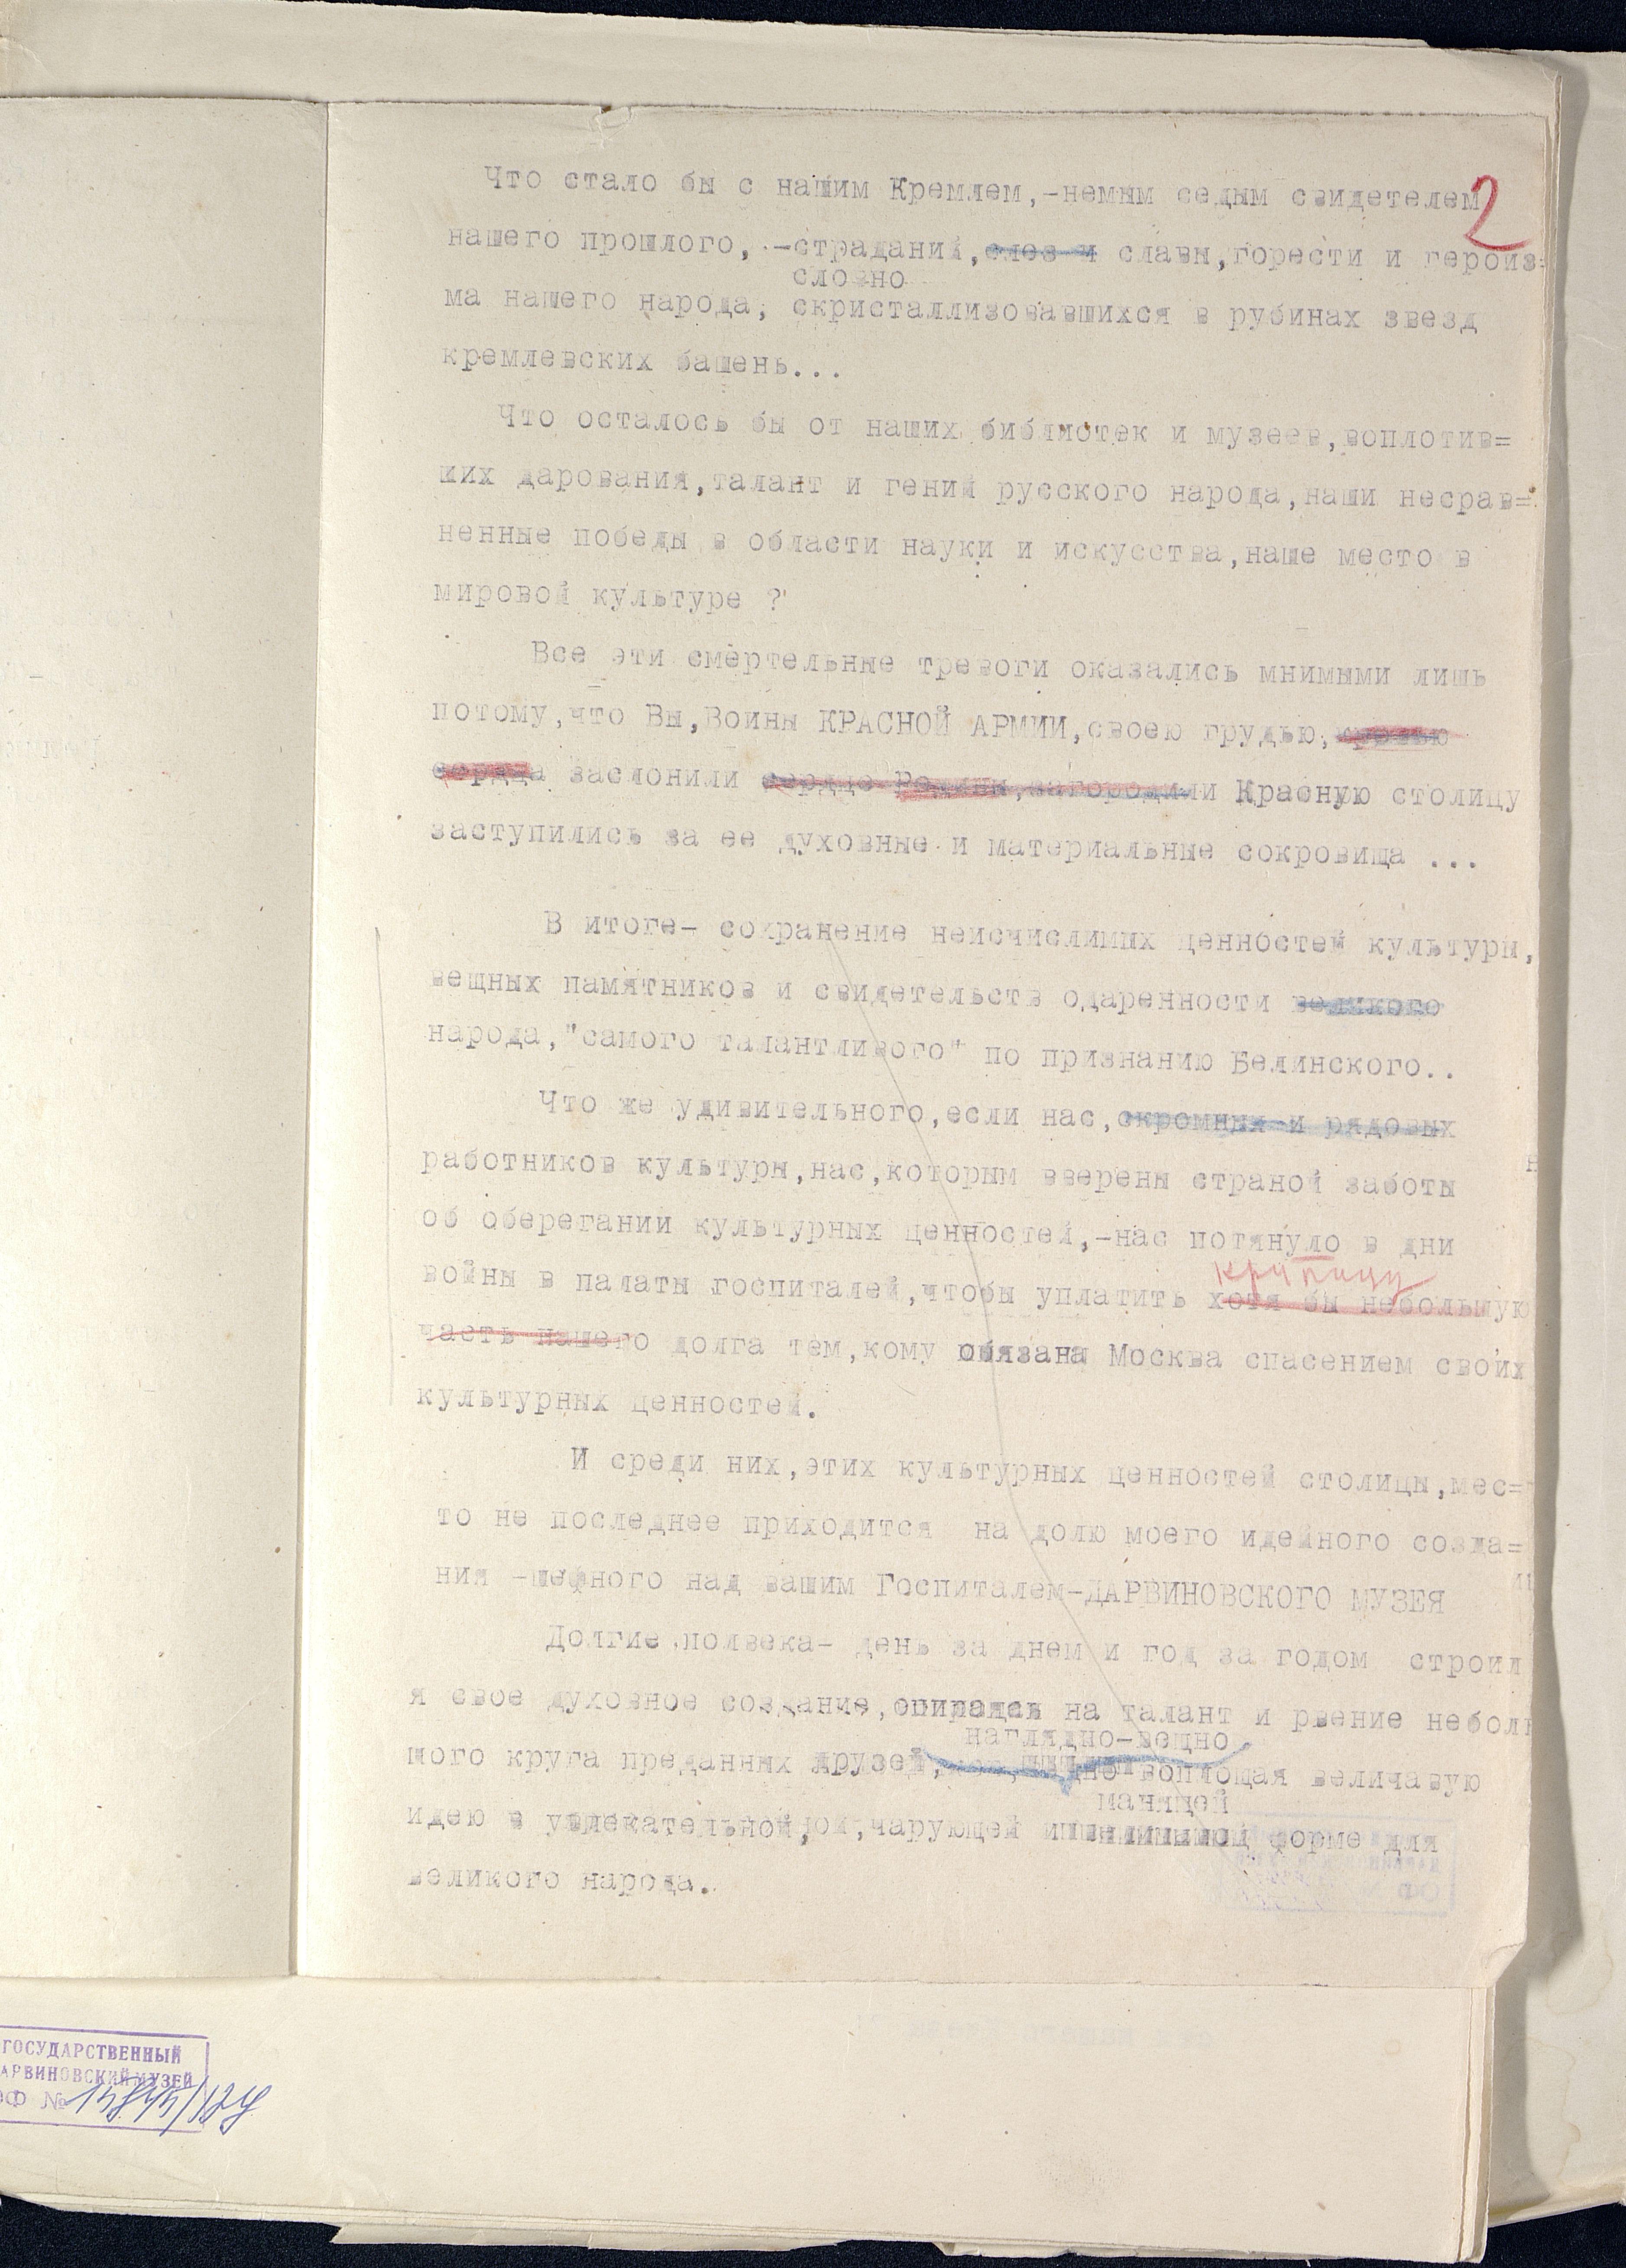 2
Что стало бы с нашим Кремлем,-немым седым свидетелем
нашего прошлого, -страданий,слез и славы,горести и героиз=
словно
ма нашего народа, скристаллизовавшихся в рубинах звезд
кремлевских башень...
Что осталось бы от наших библиотек и музеев,воплотив=
ших дарования,талант и гений русского народа,наши несрав=
ненные победы в области науки и искусства,наше место в
мировой культуре ?
Все эти смертельные тревоги оказались мнимыми лишь
потому,что Вы,Воины КРАСНОЙ АРМИИ,своею грудью,кровью
сердца заслонили сердце Родины,загородили Красную столицу
заступились за ее духовные и материальные сокровища ...
В итоге- сохранение неисчислимых ценностей культуры,
вещных памятников и свидетельств одаренности великого
народа,"самого талантливого" по признанию Белинского..
Что же удивительного,если нас,скромных и рядовых
работников культуры,нас,которым вверены страной заботы
об оберегании культурных ценностей,-нас потянуло в дни
крупицу
войны в палаты госпиталей,чтобы уплатить хотя бы небольшую
часть нашего долга тем,кому обязана Москва спасением своих
культурных ценностей.
И среди них,этих культурных ценностей столицы,мес=
то не последнее приходится на долю моего идейного созда=
ния -шефного над вашим Госпиталем-ДАРВИНОВСКОГО МУЗЕЯ
Долгие полвека- день за днем и год за годом строил
я свое духовное создание,опираясь на талант и рвение неболь
наглядно-вещно
шого круга преданных друзей, воплощая величавую
манящей
идею в увлекательной, чарующей форме для
великого народа.
ГОСУДАРСТВЕННЫЙ
АРВИНОВСКИЙ МУЗЕЙ
ОФ № 15845/129